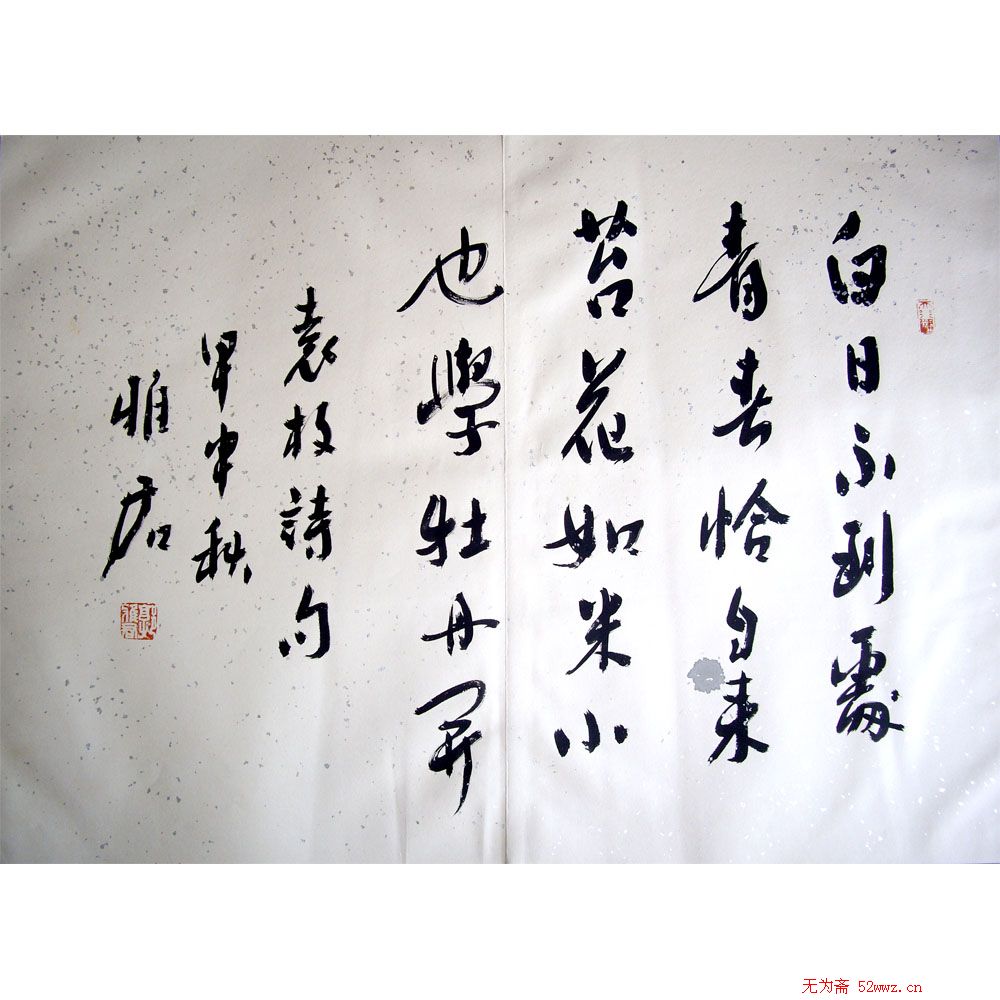 白日不到處
青春恰自来
苔花如米小
也學牡丹開
袁枚詩句
甲申秋
雅君
无为斋 52wwz.cn